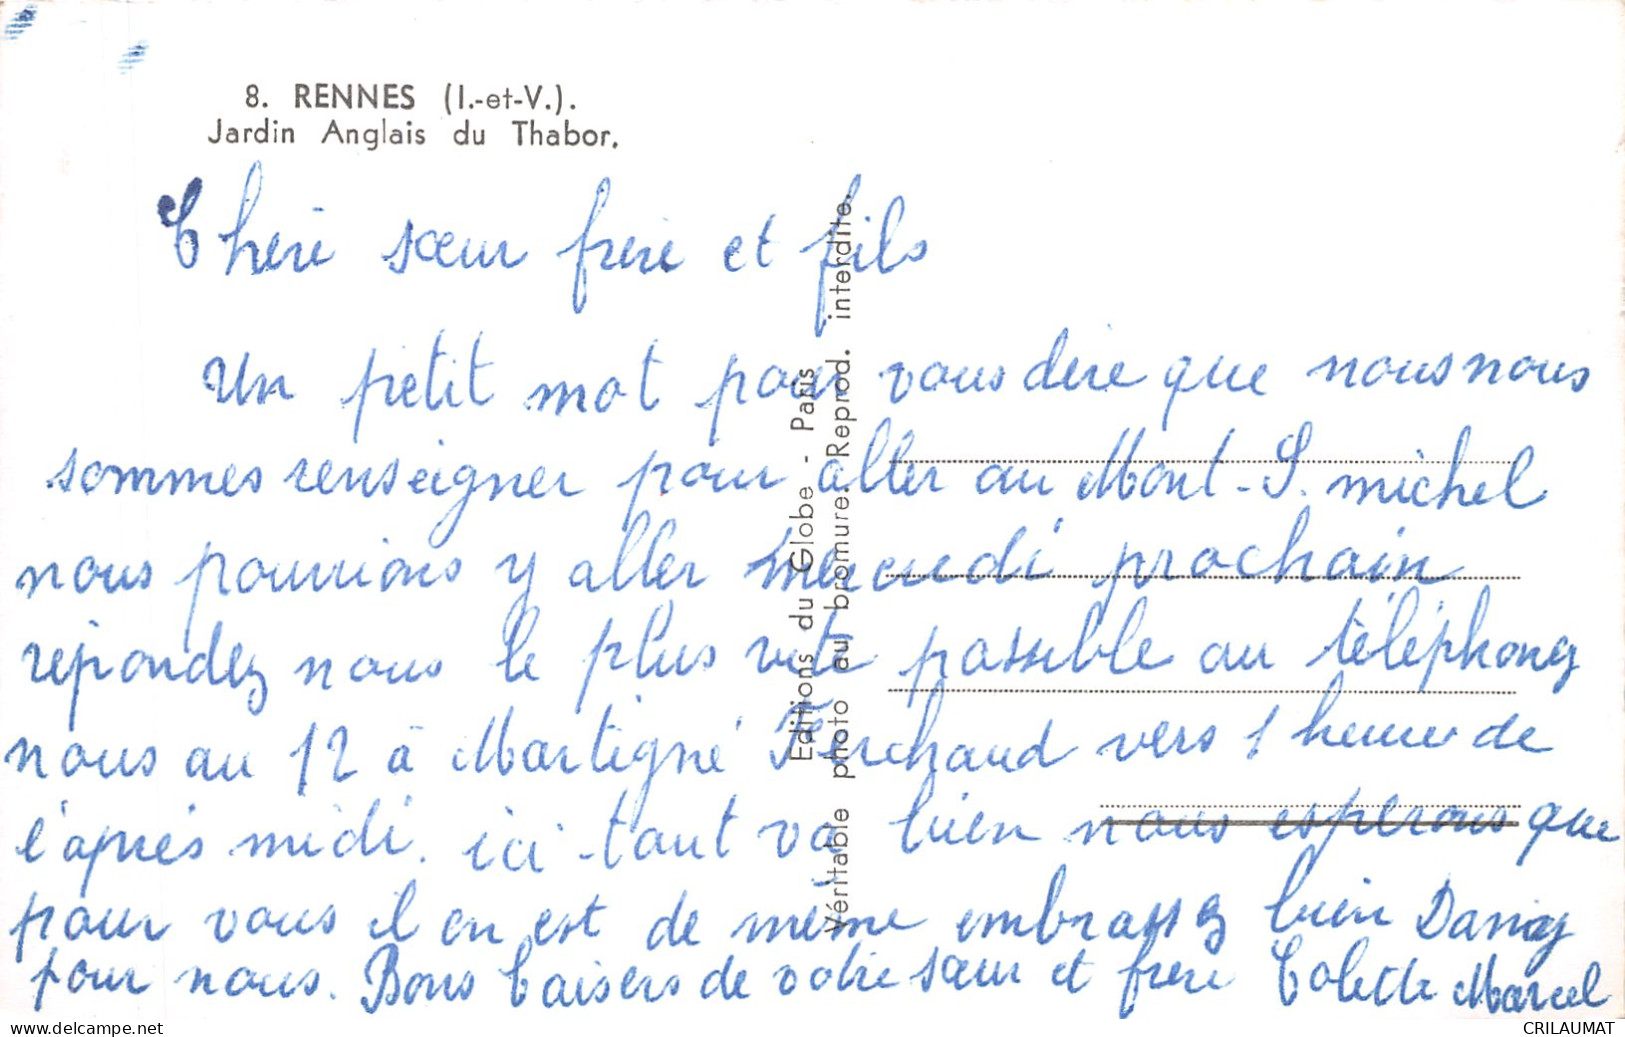 8. RENNES (I.-et-V.).
Jardin Anglais du Thabor.
Chère sœur frère et fils
Un petit mot pour vous dire que nous nous
sommes renseigner pour aller au Mont-S. michel
nous pourrions y aller mercredi prochain
répondez nous le plus vite possible au téléphonez
nous au 12 à Martigné Ferchaud vers 1 heure de
l'après midi. ici tout va bien nous espérons que
pour vous il en est de même embrassez bien Dany
pour nous. Bons baisers de votre sœur et frère Colette Marcel
Editions du Globe - Paris
Véritable photo au bromure. Reprod. interdite.
www.delcampe.net
CRILAUMAT